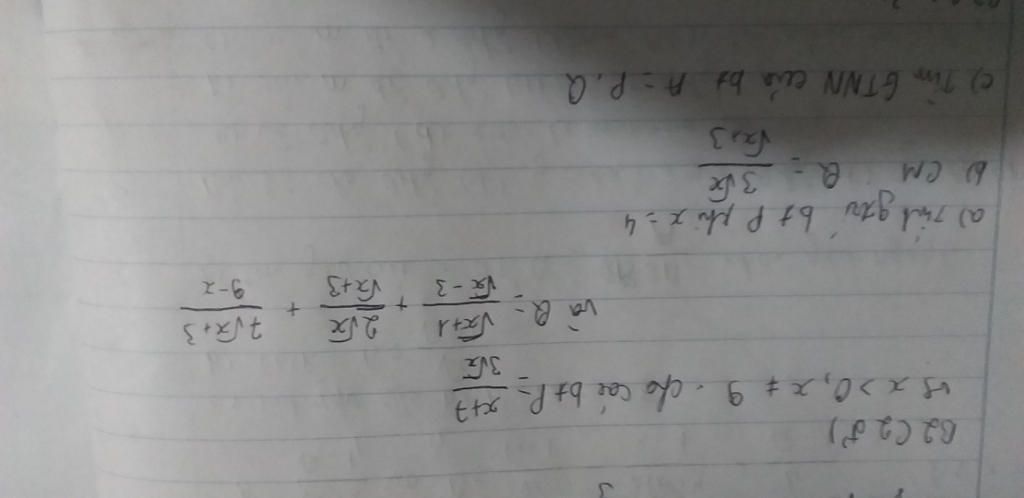 B2 (2đ)
vs x > 0, x ≠ 9. cho các bt P = \frac{x+7}{3\sqrt{x}}
và Q = \frac{\sqrt{x}+1}{\sqrt{x}-3} + \frac{2\sqrt{x}}{\sqrt{x}+3} + \frac{7\sqrt{x}+3}{9-x}
a) Tính gtrị bt P khi x = 4
b) CM Q = \frac{3\sqrt{x}}{\sqrt{x}+3}
c) Tìm GTNN của bt A = P.Q